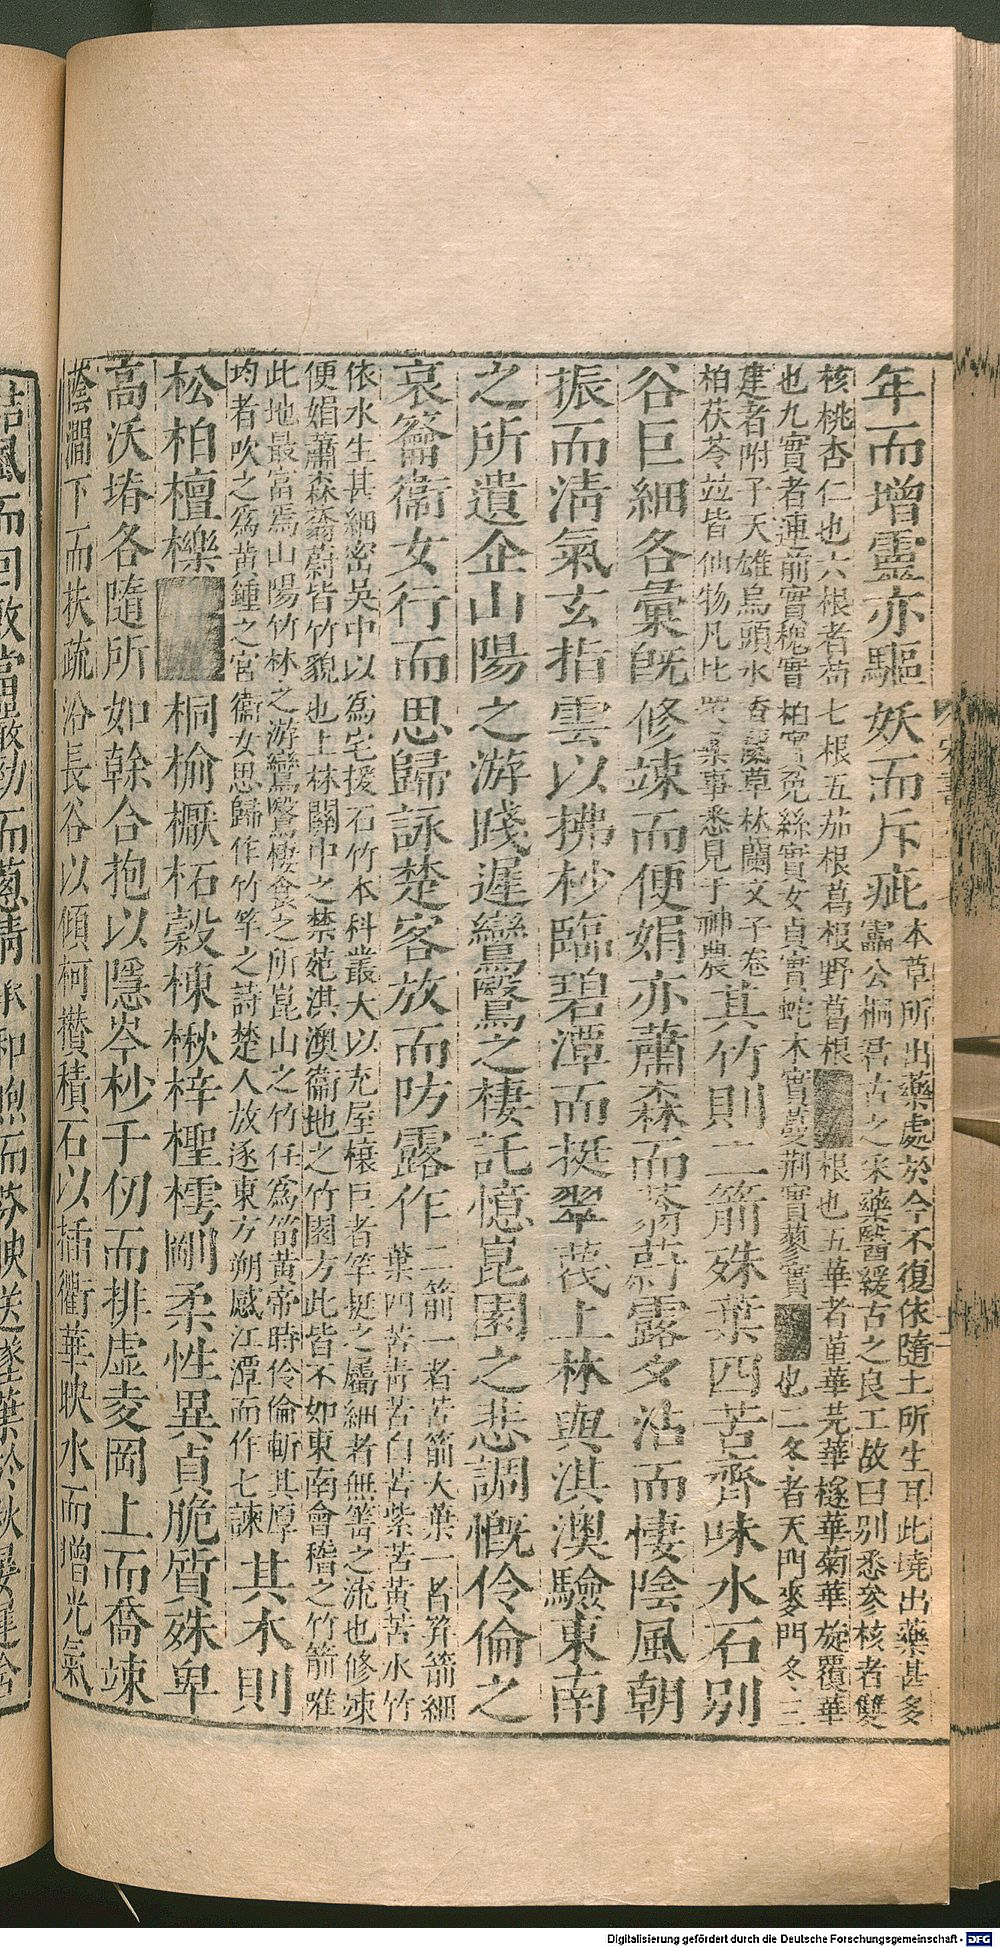 年而增靈亦驅妖而斥疵本草所出藥處於今不復依隨土所生耳此境出藥甚多
雷公桐君古之采藥醫緩古之良工故曰別悉參核者雙
核桃杏仁也六根者苟七根五茄根葛根野葛根根也五華者菫華芫華檖華菊華旋覆華
也九實者連前實槐實柏實兔絲實女貞實蛇木實蔓荆實蓼實也二冬者天門麥門冬三
建者附子天雄烏頭水香蘭草林蘭文子卷
柏茯苓竝皆仙物凡此眾藥事悉見于神農其竹則二箭殊葉四苦齊味水石別
谷巨細各彙旣修竦而便娟亦蕭森而蓊蔚露夕沾而悽陰風朝
振而清氣玄指雲以拂杪臨碧潭而挺翠蔑上林與淇澳驗東南
之所遺企山陽之游踐遲鸞鷖之棲託憶崑園之悲調慨伶倫之
哀籥衞女行而思歸詠楚客放而防露作二箭一者苦箭大葉一者笄箭細
葉四苦青苦白苦紫苦黃苦水竹
依水生甚細密吳中以爲宅援石竹本科叢大以充屋榱巨者竿挺之屬細者無箐之流也修竦
便娟蕭森蓊蔚皆竹貌也上林關中之禁苑淇澳衞地之竹園方此皆不如東南會稽之竹箭唯
此地最富焉山陽竹林之游鸞鷖棲食之所崑山之竹任爲笛黃帝時伶倫斬其厚
均者吹之爲黃鍾之宮衞女思歸作竹竿之詩楚人放逐東方朔感江潭而作七諫其木則
松柏檀櫟桐榆檿柘穀棟楸梓檉樗剛柔性異貞脆質殊卑
高沃塉各隨所如榦合抱以隱岑杪千仞而排虛凌岡上而喬竦
蔭澗下而扶疏沿長谷以傾柯攢積石以插衢華映水而增光氣
結風而回敷當嚴勁而蔥蒨承和煦而芬腴送墜葉於秋晏遲含
Digitalisierung gefördert durch die Deutsche Forschungsgemeinschaft - DFG